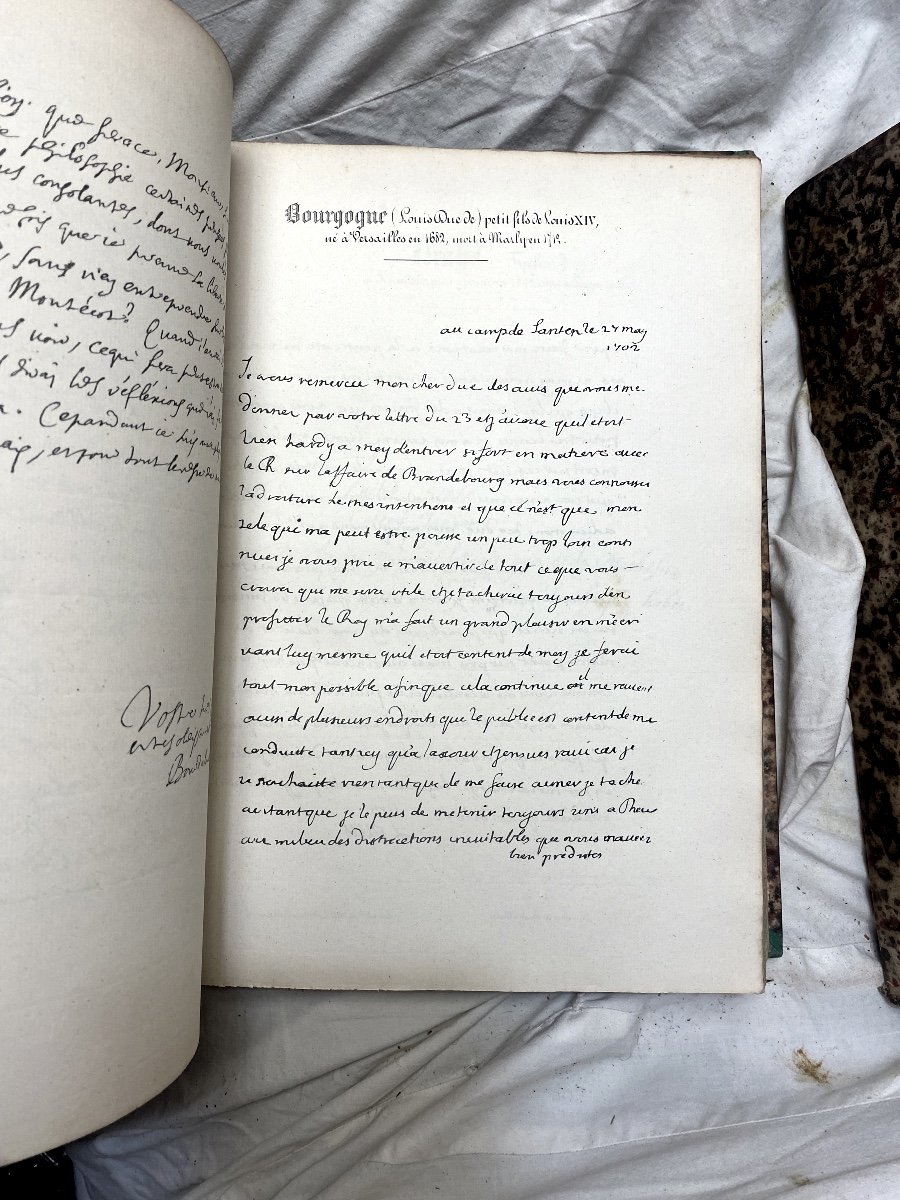 ion. que ferace, Monsieur,
philosophie certaines
consolantes, dont nous
que ie prenne la liberté
sans rien entreprendre
Montécot? Quand
voir, ce qui fera
les réfléxions que
Cependant ce
et son tout
Vostre
Bourgogne (Louis Duc de) petit fils de Louis XIV,
né à Versailles en 1682, mort à Marly en 1712.
au camp de Santen le 27 may
1702
Je vous remercie mon cher duc des avis que vous me
donner par votre lettre du 23 et j'avoue qu'il etoit
bien hardy a moy d'entrer si fort en matiere avec
le R sur l'affaire de Brandebourg mais vous connoisses
la droiture de mes intentions et que ce n'est que mon
zele qui ma peut estre pousse un peu trop loin conti
nuez je vous prie a m'avertir de tout ce que vous
croirez que me sera utile et je tacherai toujours d'en
profitter le Roy m'a fait un grand plaisir en m'ecri
vant luy mesme qu'il etoit content de moy je ferai
tout mon possible afin que cela continue il me revient
aussi de plusieurs endroits que le public est content de ma
conduite tant icy qu'a la cour et j'en suis ravi car je
ne souhaite rien tant que de me faire aimer je tache
autant que je le puis de me tenir toujours uni a Dieu
au milieu des distractions inevitables que vous m'aviez
bien predites